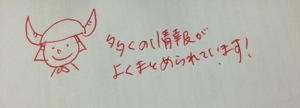 多くの情報が
よくまとめられています!